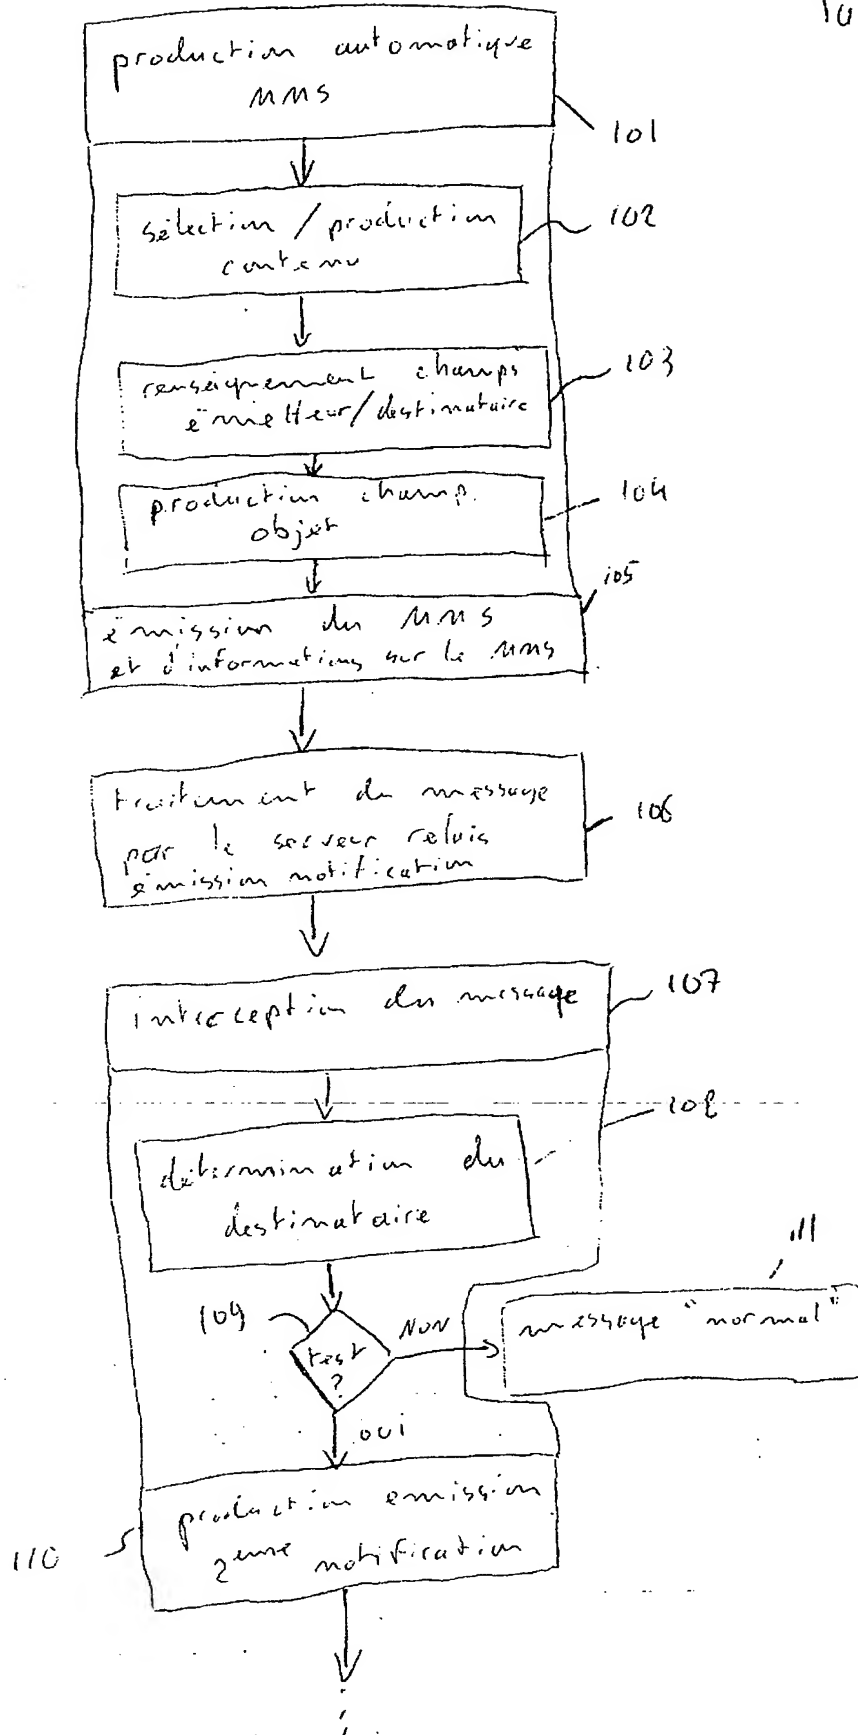 10
production automatique
MMS
101
sélection / production
contenu
102
renseignement champs
émetteur/destinataire
103
production champ
objet
104
105
émission du MMS
et d'informations sur le MMS
traitement du message
par le serveur relais
émission notification
106
interception du message
107
108
détermination du
destinataire
109
test
?
NON
111
message "normal"
oui
production emission
2eme notification
110